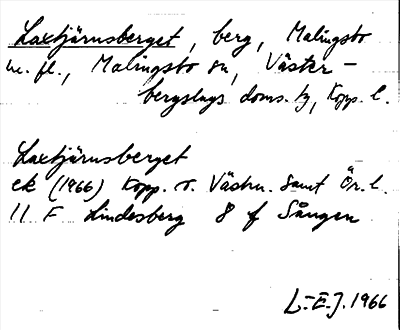 Laxtjärnsberget, berg, Malingsbo
m. fl., Malingsbo sn, Väster-
bergslags doms. tg, Kopp. l.
Laxtjärnsberget
ek (1966) Kopp. o. Västm. samt Ör. l.
11 F Lindesberg 8 f Sången
L-E.J. 1966